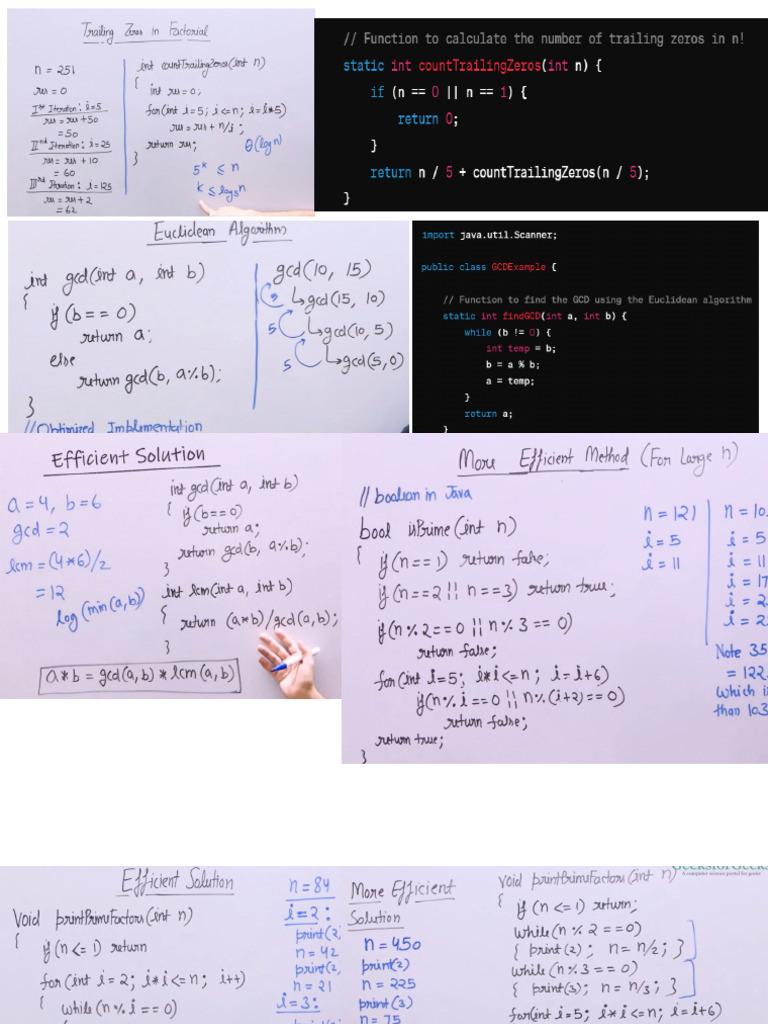 Trailing Zeros in Factorial
n = 251
res = 0
Ist Iteration: i=5
res = res + 50
= 50
IInd Iteration: i = 25
res = res + 10
= 60
IIIrd Iteration: i = 125
res = res + 2
= 62
int countTrailingZeros(int n)
{
int res = 0;
for(int i=5; i<=n; i=i*5)
res = res + n/i;
return res;
}
θ(log n)
5^k ≤ n
k ≤ log5 n
// Function to calculate the number of trailing zeros in n!
static int countTrailingZeros(int n) {
if (n == 0 || n == 1) {
return 0;
}
return n / 5 + countTrailingZeros(n / 5);
}
Euclidean Algorithm
int gcd(int a, int b)
{
if (b == 0)
return a;
else
return gcd(b, a%b);
}
//Optimized Implementation
gcd(10, 15)
gcd(15, 10)
gcd(10, 5)
gcd(5, 0)
5
5
import java.util.Scanner;
public class GCDExample {
// Function to find the GCD using the Euclidean algorithm
static int findGCD(int a, int b) {
while (b != 0) {
int temp = b;
b = a % b;
a = temp;
}
return a;
}
Efficient Solution
a = 4, b = 6
gcd = 2
lcm = (4*6)/2
= 12
log(min(a,b))
int gcd(int a, int b)
{
if(b==0)
return a;
return gcd(b, a%b);
}
int lcm(int a, int b)
{
return (a*b)/gcd(a,b);
}
a*b = gcd(a,b) * lcm(a,b)
More Efficient Method (For Large n)
// boolean in Java
bool isPrime(int n)
{
if(n==1) return false;
if(n==2 || n==3) return true;
if(n%2==0 || n%3==0)
return false;
for(int i=5; i*i<=n; i=i+6)
if(n%i==0 || n%(i+2)==0)
return false;
return true;
}
n = 121
i = 5
i = 11
n = 10
i = 5
i = 11
i = 17
i = 2
i = 2
Note 35
= 122
which i
than 103
Efficient Solution
void printPrimeFactors(int n)
{
if (n <= 1) return
for (int i = 2; i*i <= n; i++)
{ while (n % i == 0)
n = 84
i = 2:
print(2)
n = 42
print(2)
n = 21
i = 3:
More Efficient
Solution
n = 450
print(2)
n = 225
print(3)
n = 75
GeeksforGeeks
A computer science portal for geeks
void printPrimeFactors(int n)
{
if (n <= 1) return;
while(n % 2 == 0)
{ print(2); n = n/2; }
while(n % 3 == 0)
{ print(3; n = n/3; }
for(int i=5; i*i <= n; i=i+6)